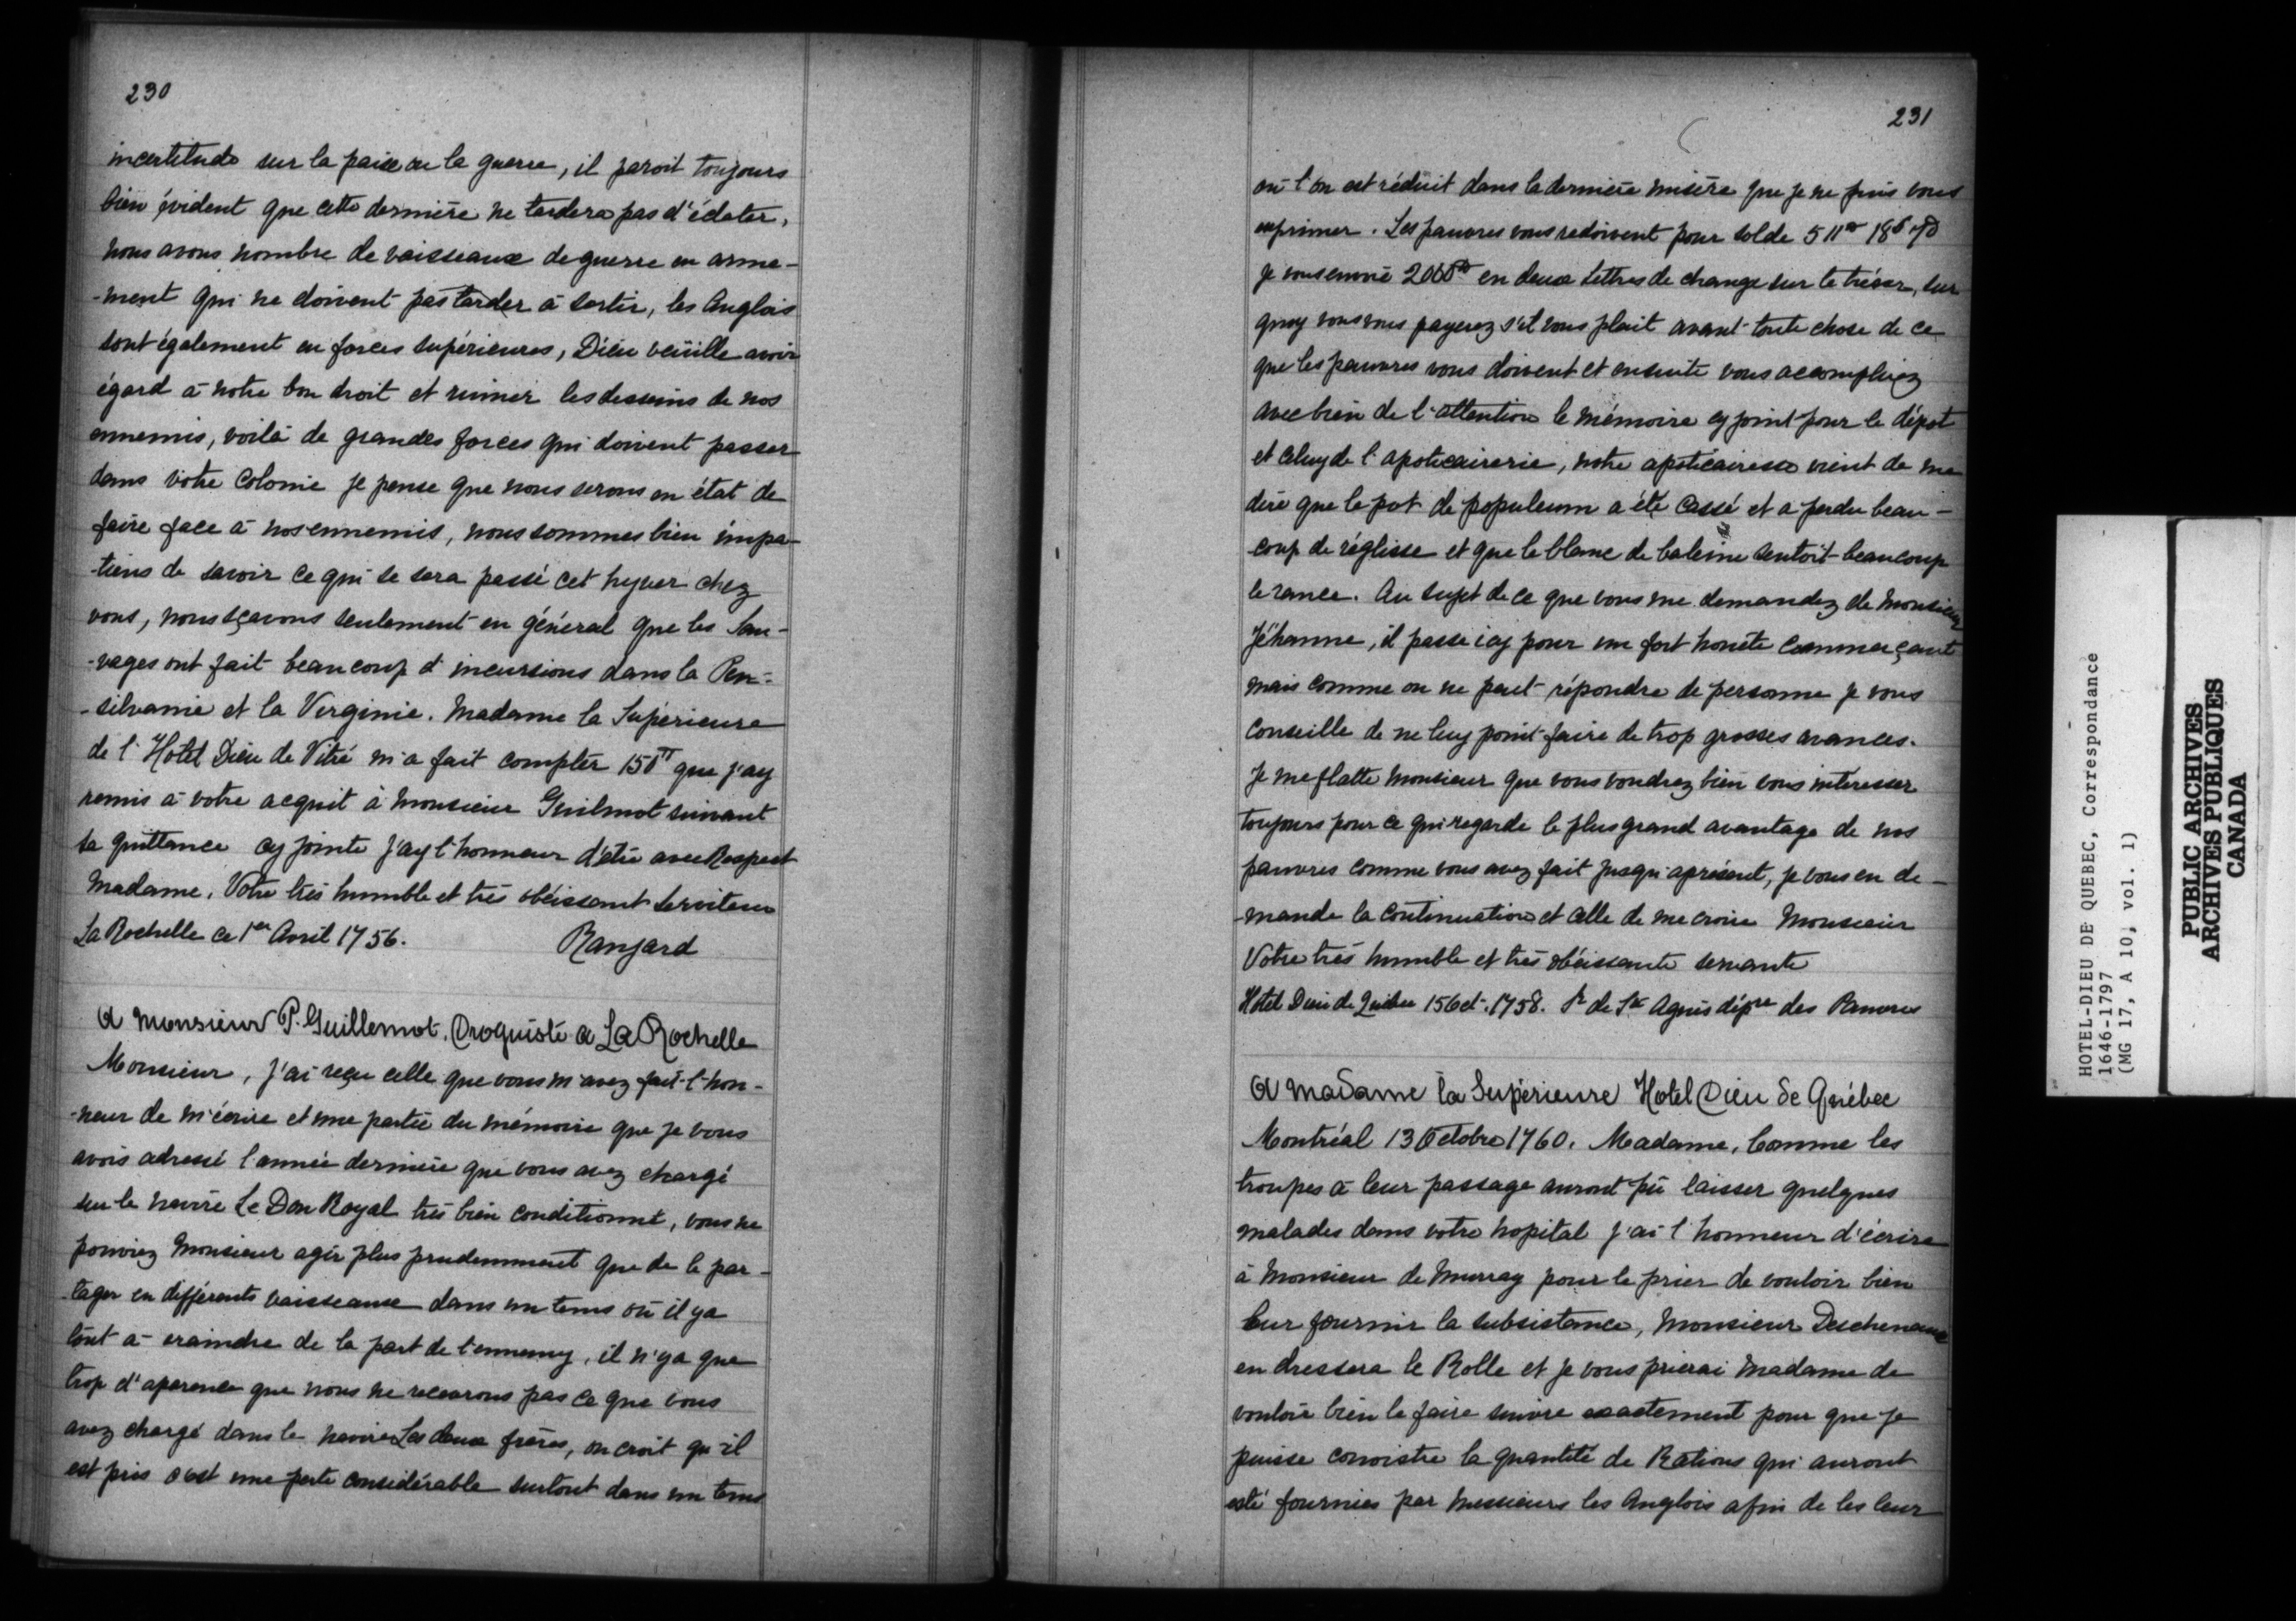 230
incertitude sur la paix ou la guerre, il paroit toujours
bien évident que cette dernière ne tardera pas d'éclater,
nous avons nombre de vaisseaux de guerre en arme-
-ment qui ne doivent pas tarder à sortir, les Anglois
sont également en forces supérieures, Dieu veuille avoir
égard à notre bon droit et ruiner les desseins de nos
ennemis, voilà de grandes forces qui doivent passer
dans votre Colonie je pense que nous serons en état de
faire face à nos ennemis, nous sommes bien impa-
-tiens de savoir ce qui se sera passé cet hyver chez
vous, nous sçavons seulement en général que les Sau-
-vages ont fait beaucoup d'incursions dans la Pen-
-silvanie et la Virginie. Madame la Supérieure
de l'Hotel Dieu de Vitré m'a fait compter 150tt que j'ay
remis à votre acquit à Monsieur Guilmot suivant
sa quittance cy jointe j'ay l'honneur d'être avec Respect
Madame, Votre très humble et très obéissant Serviteur
La Rochelle ce 1er Avril 1756. Ranjard
A Monsieur P. Guillemot, Droguiste a La Rochelle
Monsieur, j'ai reçu celle que vous m'avez fait l'hon-
-neur de m'écrire et une partie du mémoire que je vous
avois adressé l'année dernière que vous avez chargé
sur le navire Le Don Royal très bien conditionné, vous ne
pouviez Monsieur agir plus prudemment que de le par-
-tager en différents vaisseaux dans un tems où il y a
tout à craindre de la part de l'ennemy, il n'y a que
trop d'aparence que nous ne recevrons pas ce que vous
avez chargé dans le navire Les deux frères, on croit qu'il
est pris c'est une perte considérable surtout dans un tems
231
où l'on est réduit dans la dernière misère que je ne puis vous
exprimer. Les pauvres vous redoivent pour solde 511tt 18s 7d
je vous envoie 2000tt en deux Lettres de change sur le trésor, sur
quoy vous vous payerez s'il vous plait avant toute chose de ce
que les pauvres vous doivent et ensuite vous accomplirez
avec bien de l'attention le mémoire cy joint pour le dépot
et celuy de l'apoticairerie, notre apoticairesse vient de me
dire que le pot de populeum a été cassé et a perdu beau-
-coup de réglisse et que le blanc de baleine sentoit beaucoup
le rance. Au sujet de ce que vous me demandez de Monsieur
Jéhanne, il passe icy pour un fort honête Commerçant
mais comme on ne peut répondre de personne je vous
conseille de ne luy point faire de trop grosses avances.
Je me flatte Monsieur que vous voudrez bien vous intéresser
toujours pour ce qui regarde le plus grand avantage de nos
pauvres comme vous avez fait jusqu'aprésent, je vous en de-
-mande la continuation et celle de me croire Monsieur
Votre très humble et très obéissante servante
Hotel Dieu de Québec 15 Oct. 1758. Sr de Ste Agnès dépre des Pauvres
A Madame la Supérieure Hotel Dieu de Québec
Montréal 13 Octobre 1760. Madame, Comme les
troupes à leur passage auront pû laisser quelques
malades dans votre hopital j'ai l'honneur d'écrire
à Monsieur de Murray pour le prier de vouloir bien
leur fournir la subsistance, Monsieur Deschenaux
en dressera le Rolle et je vous prierai Madame de
vouloir bien le faire suivre exactement pour que je
puisse connoistre la quantité de Rations qui auront
esté fournies par Messieurs les Anglois afin de les leur
HOTEL-DIEU DE QUEBEC, Correspondance
1646-1797
(MG 17, A 10, vol. 1)
PUBLIC ARCHIVES
ARCHIVES PUBLIQUES
CANADA